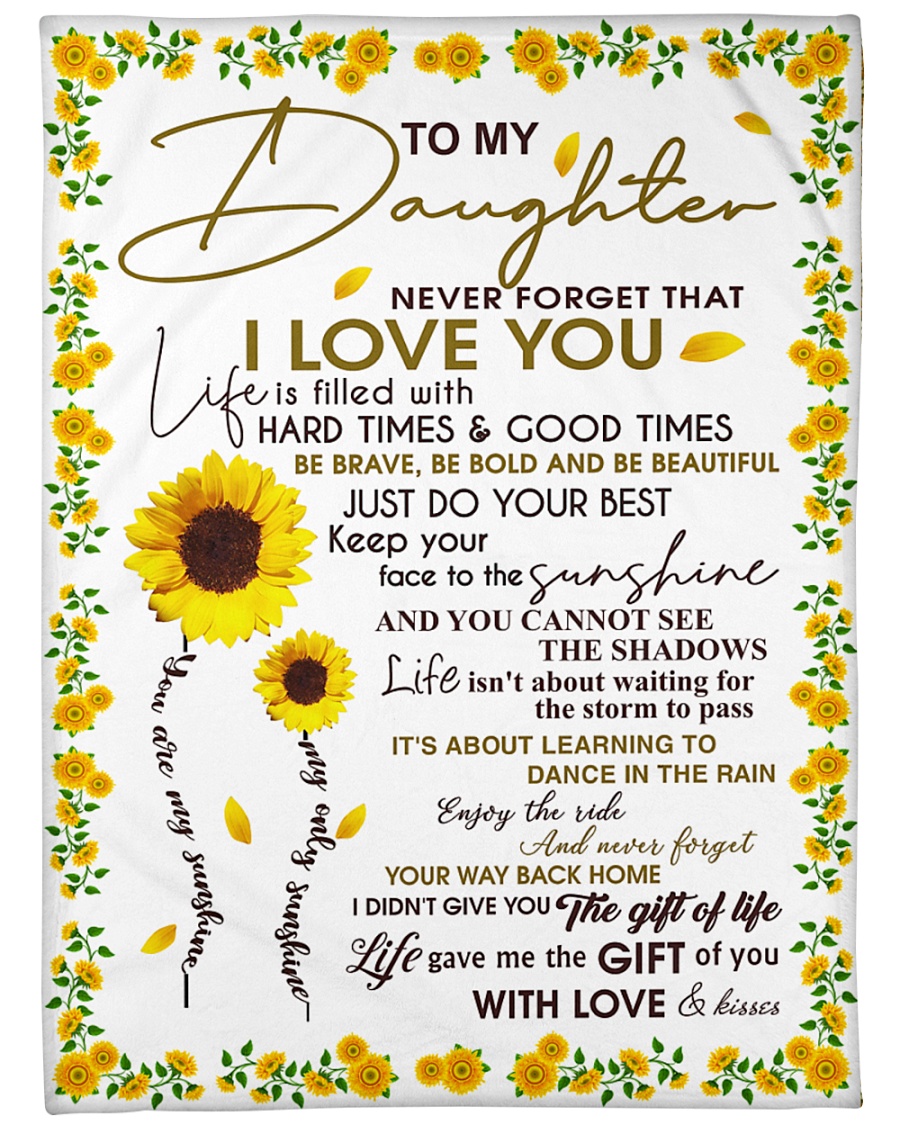 TO MY
Daughter
NEVER FORGET THAT
I LOVE YOU
Life is filled with
HARD TIMES & GOOD TIMES
BE BRAVE, BE BOLD AND BE BEAUTIFUL
JUST DO YOUR BEST
Keep your
face to the sunshine
AND YOU CANNOT SEE
THE SHADOWS
Life isn't about waiting for
the storm to pass
IT'S ABOUT LEARNING TO
DANCE IN THE RAIN
Enjoy the ride
And never forget
YOUR WAY BACK HOME
I DIDN'T GIVE YOU The gift of life
Life gave me the GIFT of you
WITH LOVE & kisses
You are my sunshine
my only sunshine